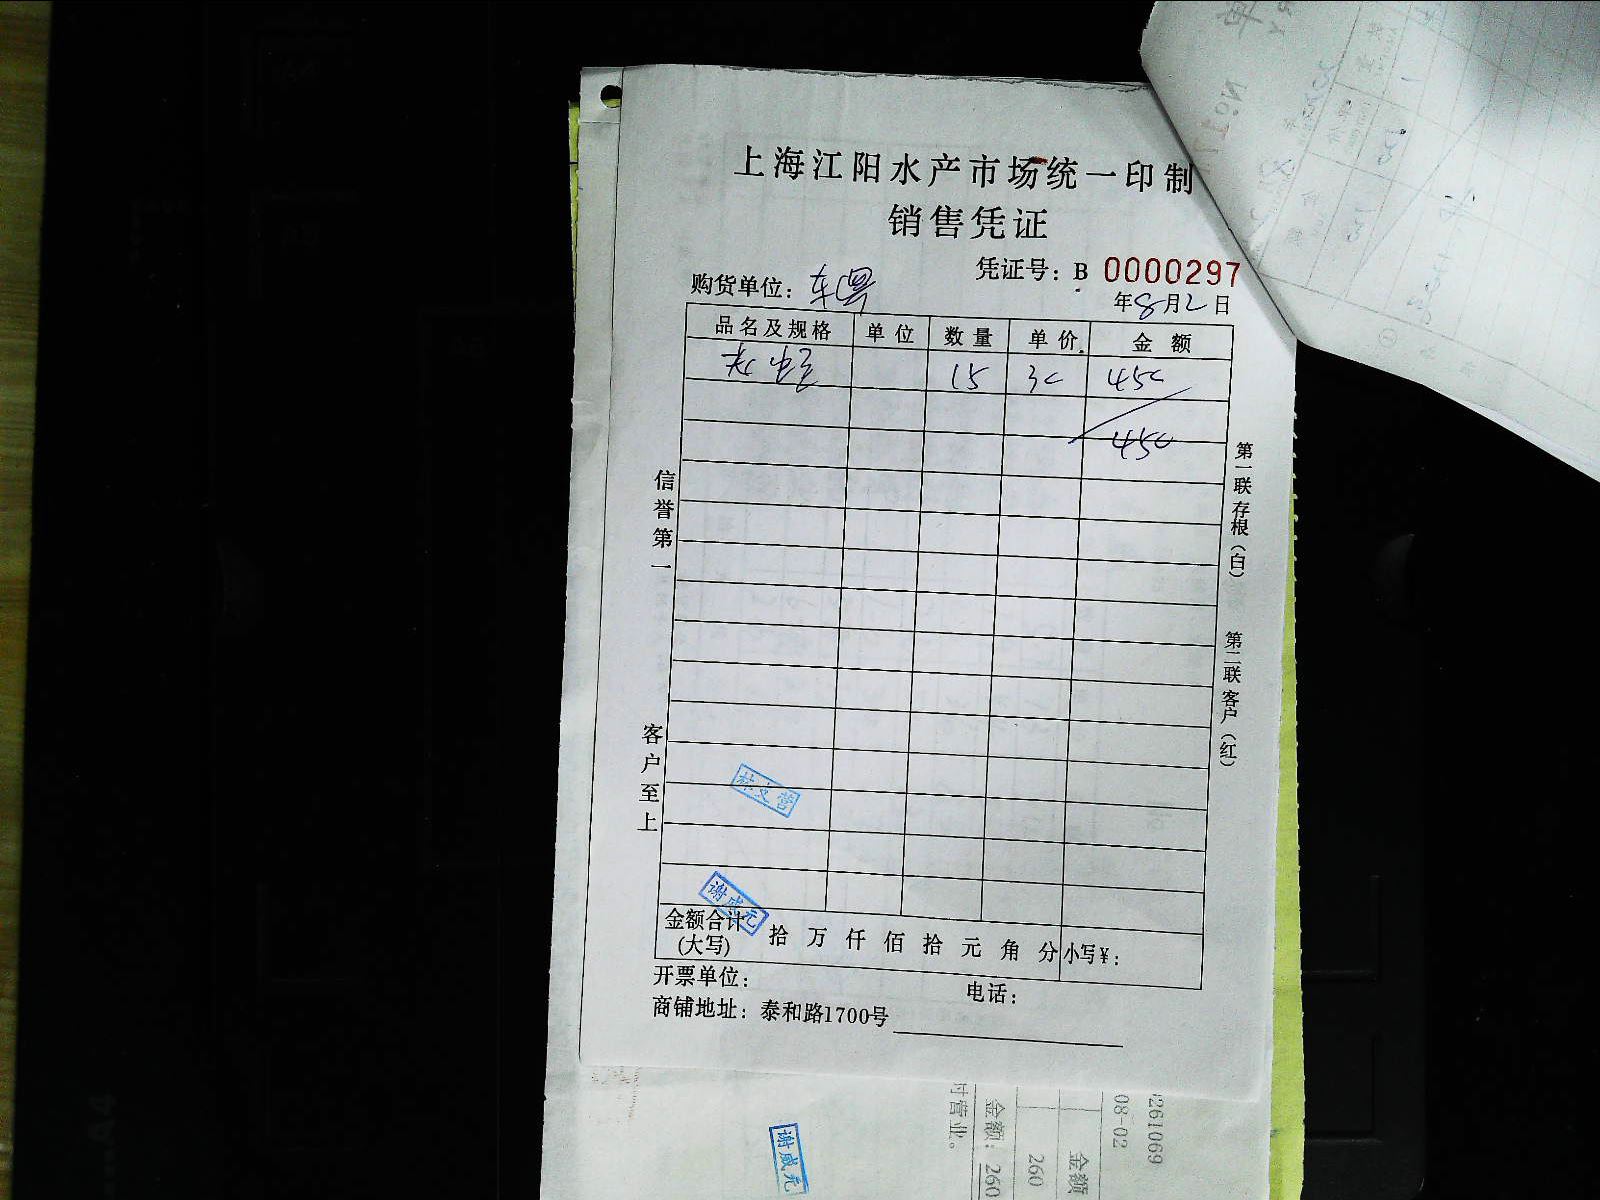 上海江阳水产市场统一印制
销售凭证
凭证号：B 0000297
购货单位：
年8月2日
品名及规格 单位 数量 单价 金额
15 30 450
450
信誉第一
客户至上
第一联存根（白）
第二联客户（红）
林文营
谢威元
金额合计(大写) 拾 万 仟 佰 拾 元 角 分 小写¥：
开票单位：
电话：
商铺地址：泰和路1700号
谢威元
付营业。
金额：260
260
金额
08-02
261069